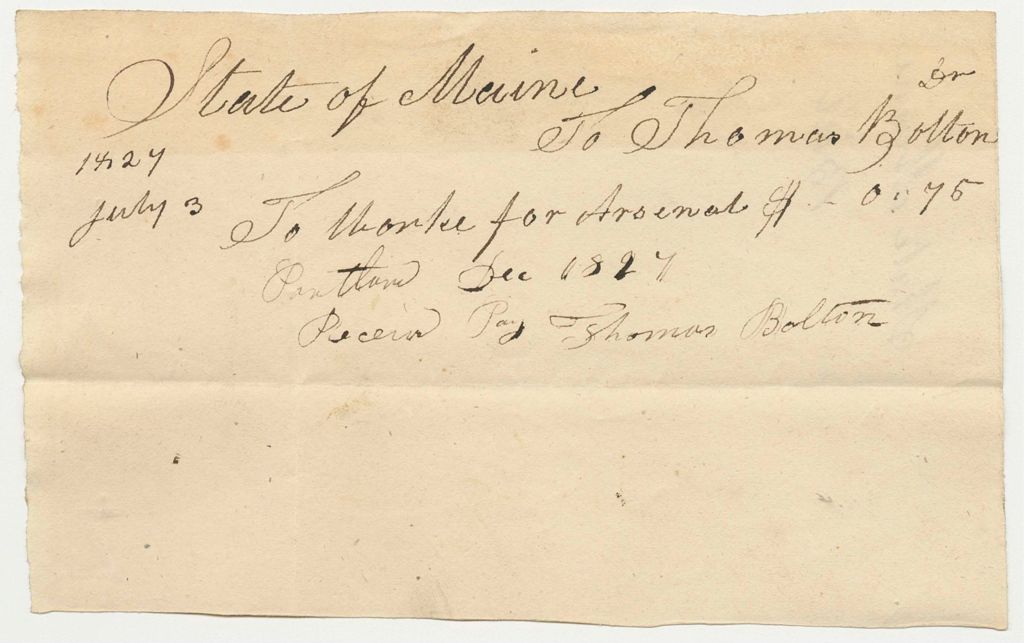 State of Maine Dr
To Thomas Bolton
1827
July 3 To Worke for Arsenal $ - 0..75
Portland Dec 1827
Receivd Pay Thomas Bolton